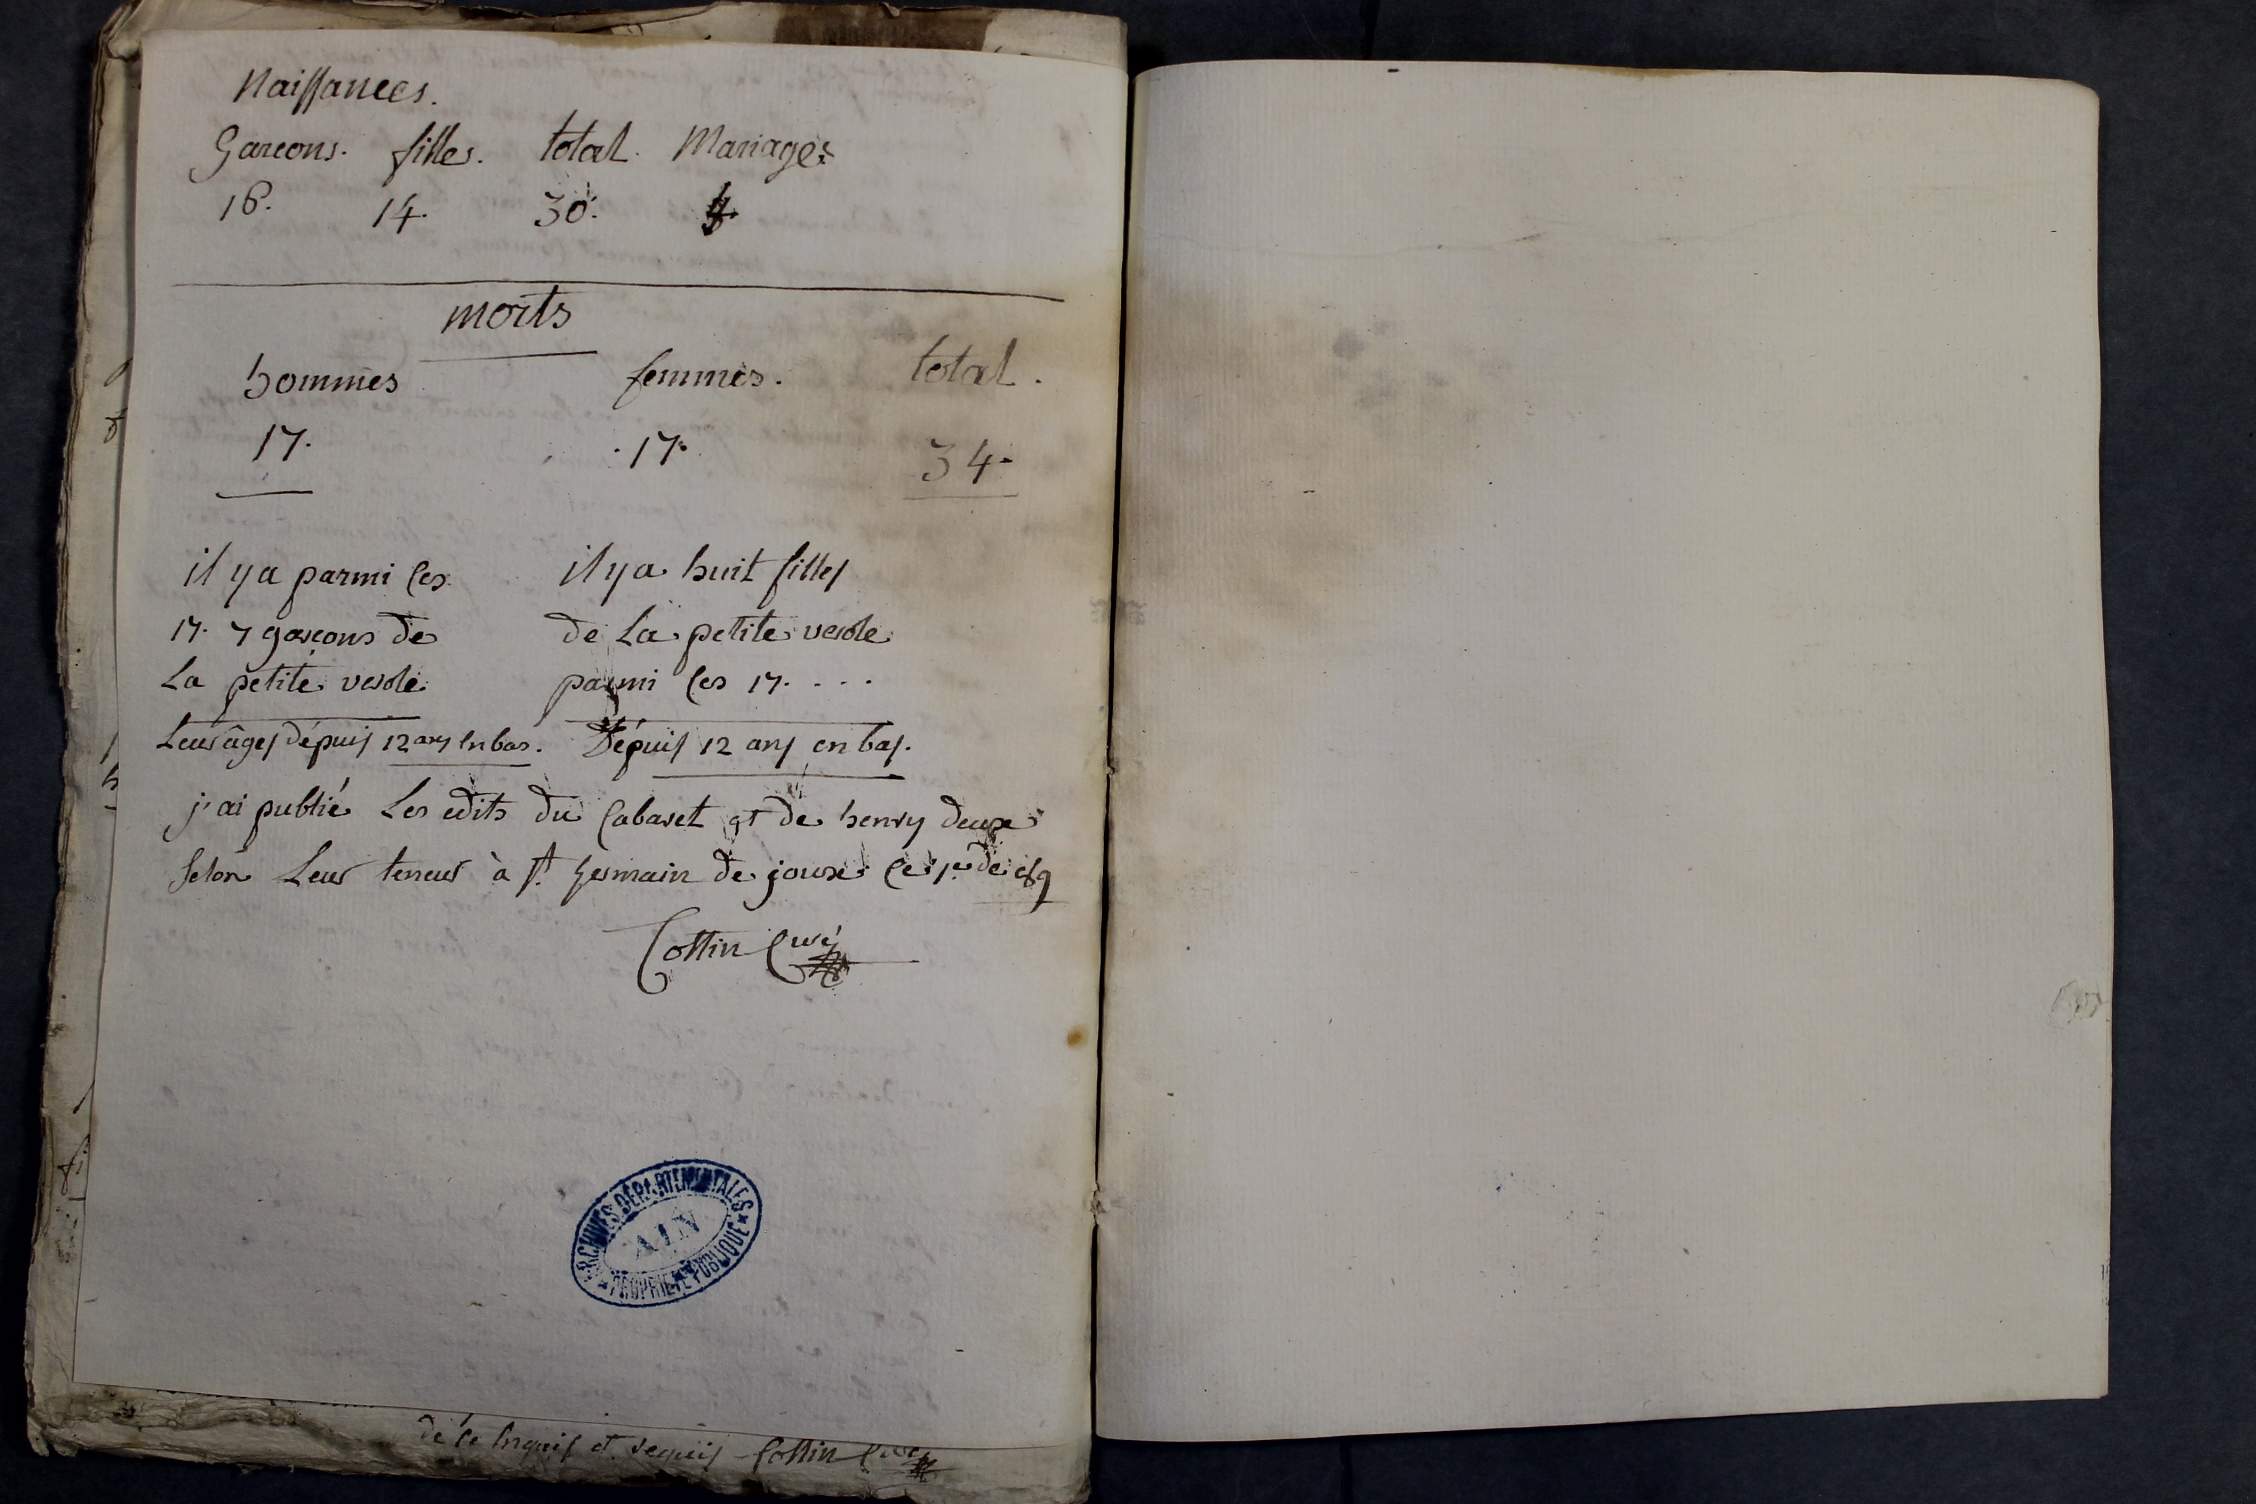 Naissances.
Garcons. filles. total. Mariages
16. 14. 30.
morts
hommes femmes. total.
17. 17. 34.
il y a parmi les il y a huit filles
17. 7 garçons de de La petite verole
La petite verole parmi les 17. . . .
Leurs âges dépuis 12 ans en bas. Dépuis 12 ans en bas.
j'ai publié Les edits du Cabaret et de henry deux
selon Leur teneur à st. germain de joux
Cottin Curé
ARCHIVES DÉPARTEMENTALES
AIN
PROPRIÉTÉ PUBLIQUE
de ce enquis et requis Cottin Curé